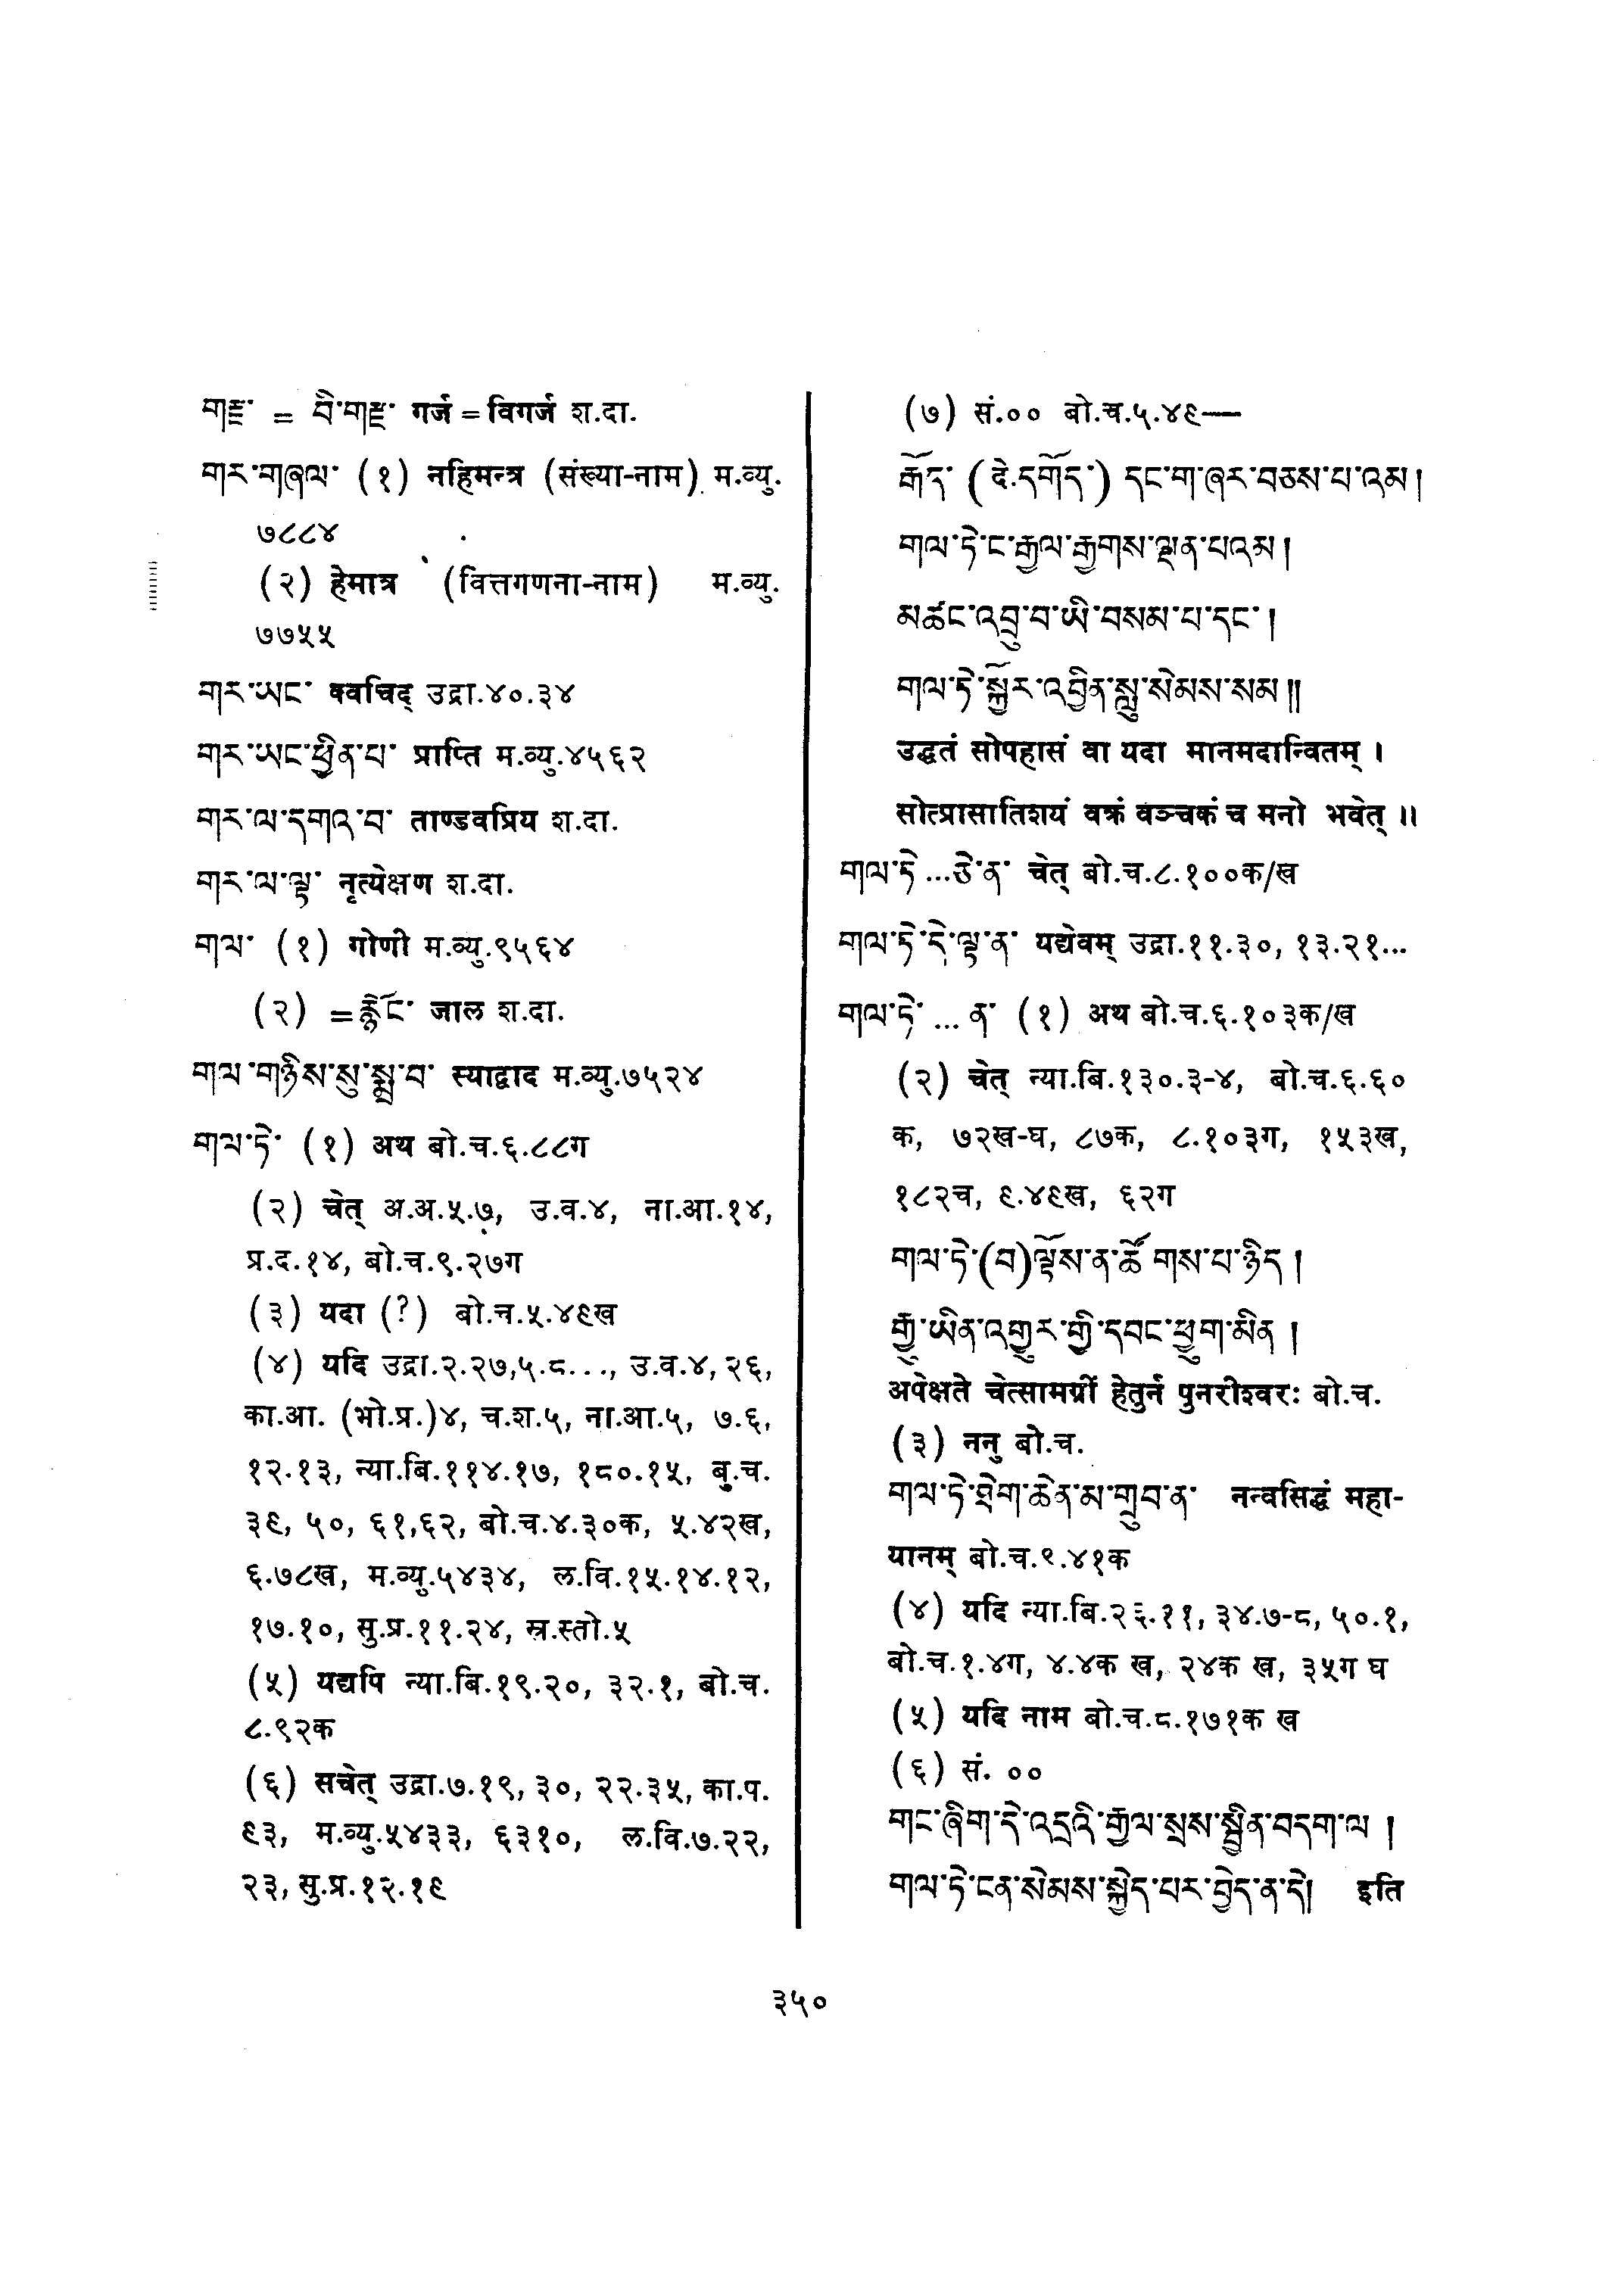 གརྫ་ = བི་གརྫ་ गर्ज = विगर्ज श.दा.
གར་གཞལ་ (१) नहिमन्त्र (संख्या-नाम) म.व्यु.
७८८४
(२) हेमात्र (वित्तगणना-नाम) म.व्यु.
७७५५
གར་ཡང་ क्वचिद् उद्रा.४०.३४
གར་ཡང་ཕྱིན་པ་ प्राप्ति म.व्यु.४५६२
གར་ལ་དགའ་བ་ ताण्डवप्रिय श.दा.
གར་ལ་ལྟ་ नृत्येक्षण श.दा.
གལ་ (१) गोणी म.व्यु.९५६४
(२) =རྙོང་ जाल श.दा.
གལ་གཉིས་སུ་སྨྲ་བ་ स्याद्वाद म.व्यु.७५२४
གལ་ཏེ་ (१) अथ बो.च.६.८८ग
(२) चेत् अ.अ.५.७, उ.व.४, ना.आ.१४,
प्र.द.१४, बो.च.९.२७ग
(३) यदा (?) बो.च.५.४९ख
(४) यदि उद्रा.२.२७,५.८..., उ.व.४, २६,
का.आ. (भो.प्र.)४, च.श.५, ना.आ.५, ७.६,
१२.१३, न्या.बि.११४.१७, १८०.१५, बु.च.
३९, ५०, ६१,६२, बो.च.४.३०क, ५.४२ख,
६.७८ख, म.व्यु.५४३४, ल.वि.१५.१४.१२,
१७.१०, सु.प्र.११.२४, स्र.स्तो.५
(५) यद्यपि न्या.बि.१९.२०, ३२.१, बो.च.
८.९२क
(६) सचेत् उद्रा.७.१९, ३०, २२.३५, का.प.
९३, म.व्यु.५४३३, ६३१०, ल.वि.७.२२,
२३, सु.प्र.१२.१९
(७) सं.०० बो.च.५.४९—
རྒོད་ (དེ.དགོད་) དང་ག་ཞར་བཅས་པ་འམ།
གལ་ཏེ་ང་རྒྱལ་རྒྱགས་ལྡན་པའམ།
མཚང་འབྲུ་བ་ཡི་བསམ་པ་དང་།
གལ་ཏེ་སྐྱོར་འབྱིན་སླུ་སེམས་སམ༎
उद्धतं सोपहासं वा यदा मानमदान्वितम् ।
सोत्प्रासातिशयं वक्रं वञ्चकं च मनो भवेत् ।।
གལ་ཏེ ...ཅེ་ན་ चेत् बो.च.८.१००क/ख
གལ་ཏེ་དེ་ལྟ་ན་ यद्येवम् उद्रा.११.३०, १३.२१...
གལ་ཏེ་ ... ན་ (१) अथ बो.च.६.१०३क/ख
(२) चेत् न्या.बि.१३०.३-४, बो.च.६.६०
क, ७२ख-घ, ८७क, ८.१०३ग, १५३ख,
१८२च, ९.४९ख, ६२ग
གལ་ཏེ་(བ)ལྟོས་ན་ཚོ གས་པ་ཉིད །
རྒྱུ་ཡིན་འགྱུར་གྱི་དབང་ཕྱུག་མིན །
अपेक्षते चेत्सामग्रीं हेतुर्न पुनरीश्वरः बो.च.
(३) ननु बो.च.
གལ་ཏེ་ཐེག་ཆེན་མ་གྲུབ་ན་ नन्वसिद्धं महा-
यानम् बो.च.९.४१क
(४) यदि न्या.बि.२६.११, ३४.७-८, ५०.१,
बो.च.१.४ग, ४.४क ख, २४क ख, ३५ग घ
(५) यदि नाम बो.च.८.१७१क ख
(६) सं. ००
གང་ཞིག་དེ་འདྲའི་རྒྱལ་སྲས་སྦྱིན་བདག་ལ །
གལ་ཏེ་ངན་སེམས་སྐྱེད་པར་བྱེད་ན་དེ། इति
३५०